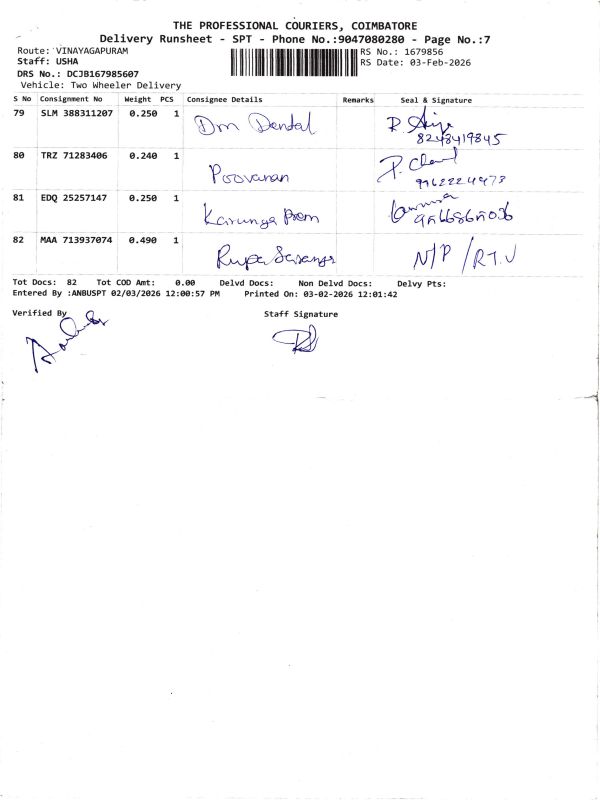 THE PROFESSIONAL COURIERS, COIMBATORE
Delivery Runsheet - SPT - Phone No.:9047080280 - Page No.:7
Route: VINAYAGAPURAM
RS No.: 1679856
Staff: USHA
RS Date: 03-Feb-2026
DRS No.: DCJB167985607
Vehicle: Two Wheeler Delivery
S No Consignment No Weight PCS Consignee Details Remarks Seal & Signature
79 SLM 388311207 0.250 1 Dm Dental
8248419845
80 TRZ 71283406 0.240 1 Poovanan
81 EDQ 25257147 0.250 1 Karunga
82 MAA 713937074 0.490 1 Rupa N/P /R.T.V
Tot Docs: 82 Tot COD Amt: 0.00 Delvd Docs: Non Delvd Docs: Delvy Pts:
Entered By :ANBUSPT 02/03/2026 12:00:57 PM Printed On: 03-02-2026 12:01:42
Verified By Staff Signature